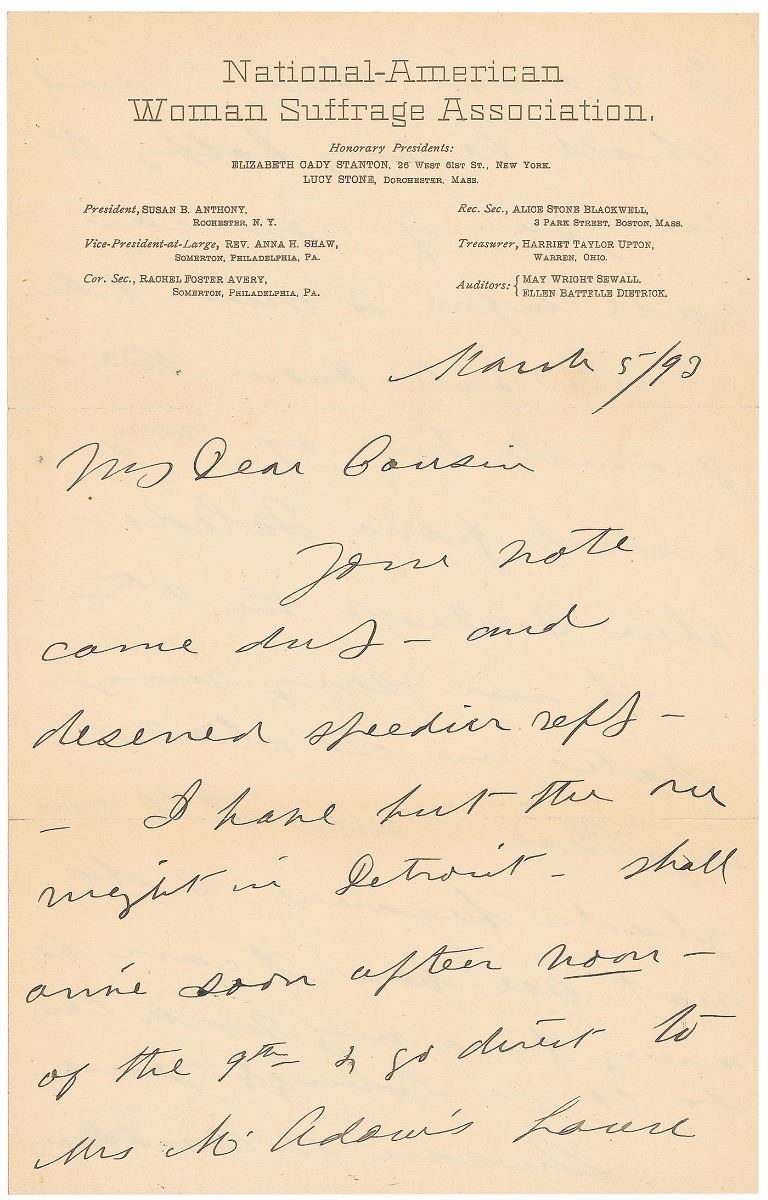 National-American
Woman Suffrage Association.
Honorary Presidents:
ELIZABETH CADY STANTON, 26 West 61st St., New York.
LUCY STONE, Dorchester, Mass.
President, SUSAN B. ANTHONY,
Rochester, N. Y.
Vice-President-at-Large, REV. ANNA H. SHAW,
Somerton, Philadelphia, Pa.
Cor. Sec., RACHEL FOSTER AVERY,
Somerton, Philadelphia, Pa.
Rec. Sec., ALICE STONE BLACKWELL,
3 Park Street, Boston, Mass.
Treasurer, HARRIET TAYLOR UPTON,
Warren, Ohio.
Auditors: { MAY WRIGHT SEWALL.
ELLEN BATTELLE DIETRICK.
March 5/93
My Dear Cousin
Your note
came duly – and
deserved speedier reply –
– I have but the one
night in Detroit – shall
arrive soon after noon –
of the 9th & go direct to
Mrs McAdow's house